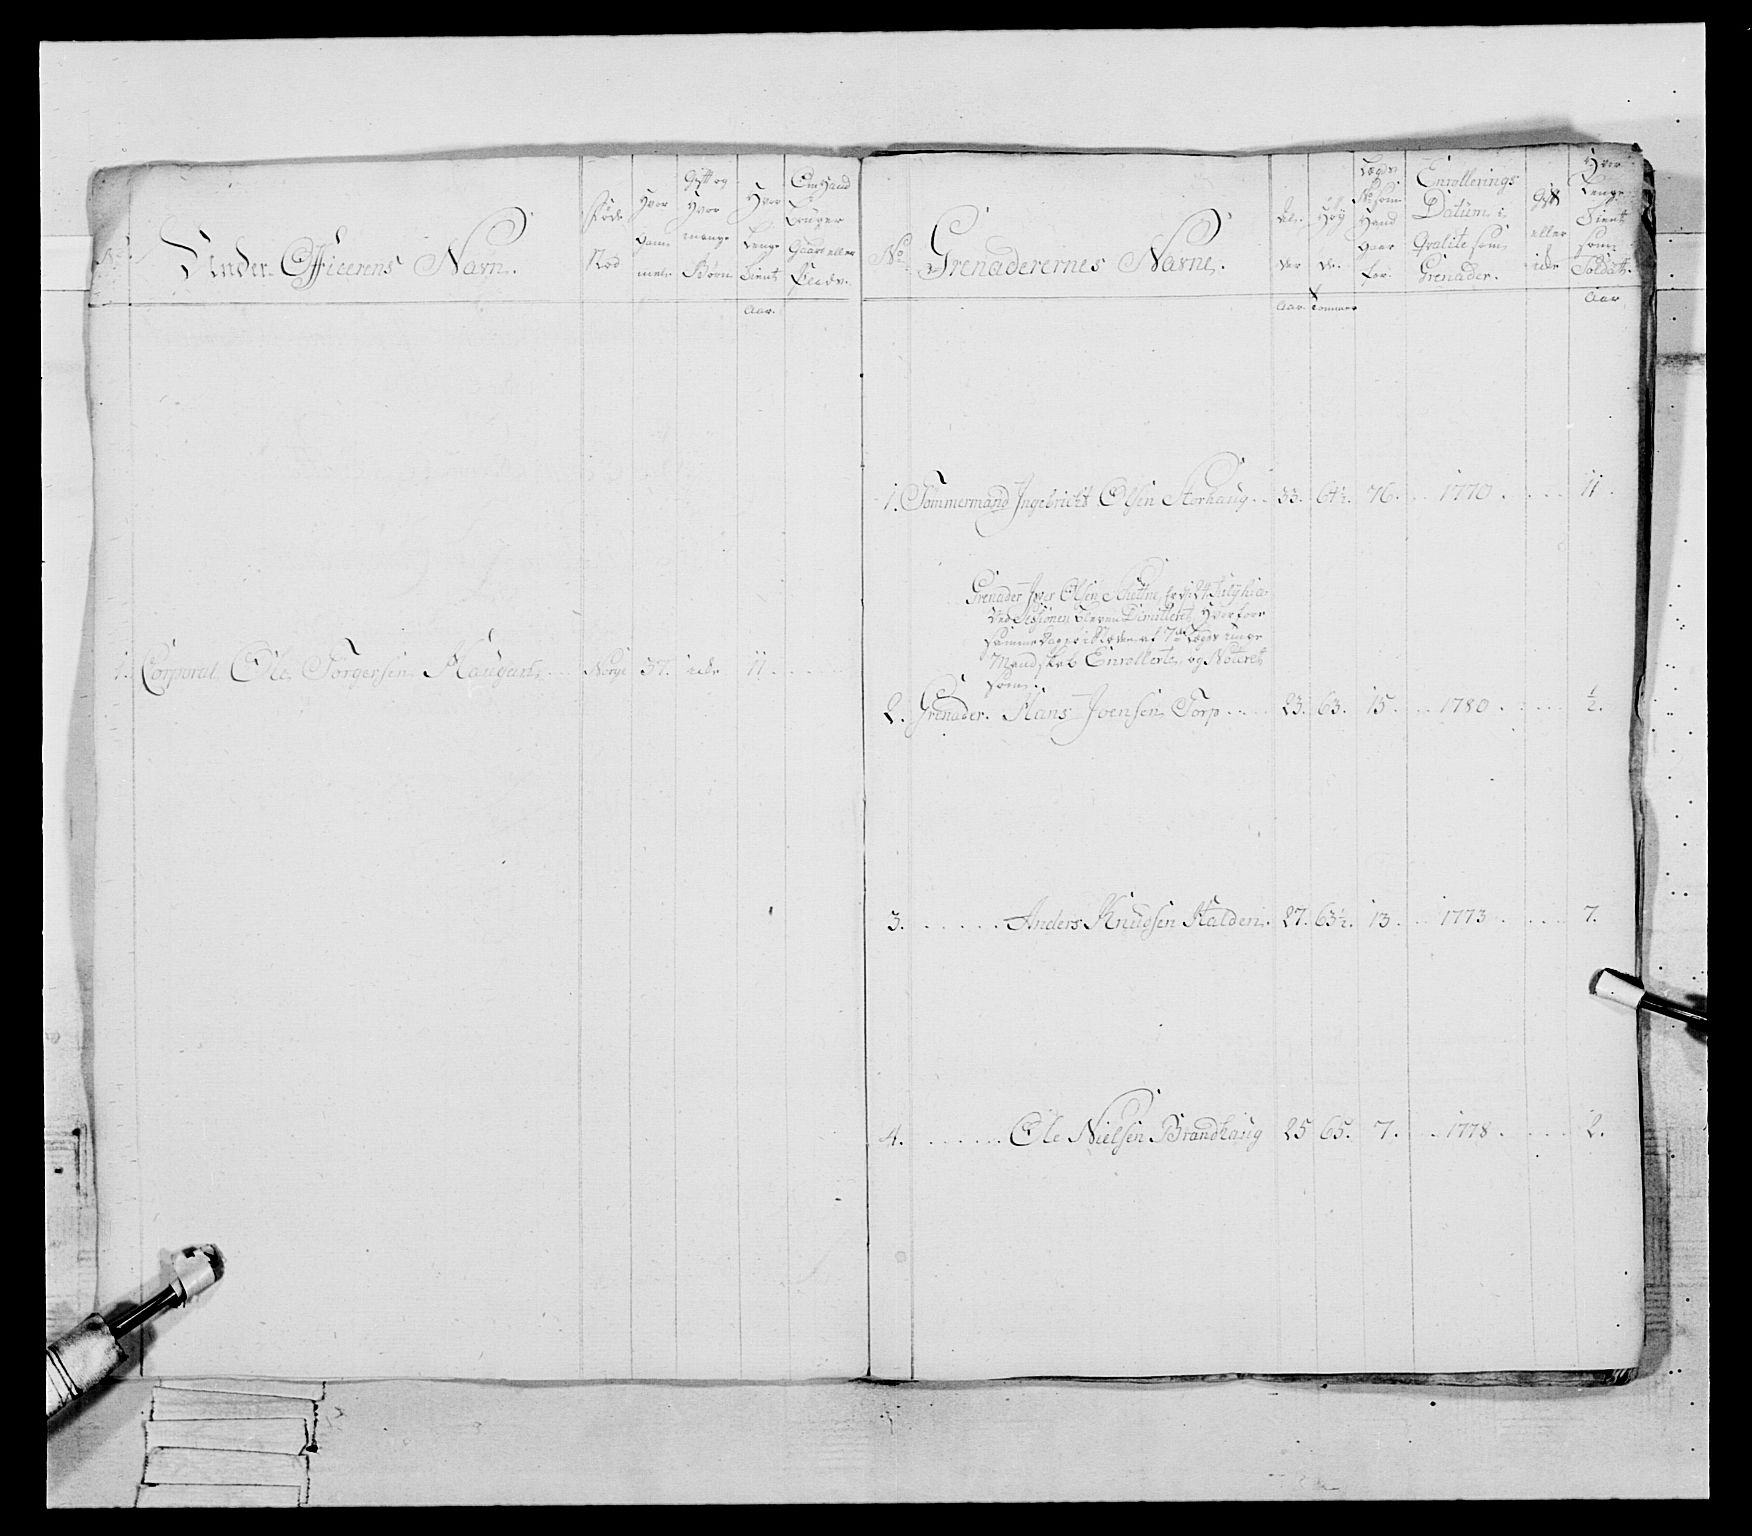 No Under-Officerens Navn.
Føde
Stæd
Hvor
Gam̄
mel.
Gift og
Hvor
mange
Børn
Hvor
Lenge
Tient
Aar.
Om Hand
bruger
Gaard eller
Plads.
1. Corporal Ole Torgersen Haugan ... Norge 37. icke 11 ......
No Grenaderernes Navne.
Al-
der
Aar
Høy-
de.
Tommer
Lægs
No som
Hand
Haar
for.
Enrollerings
Datum i
Qvalite som
Grenader.
Gift
eller
icke
Hvor
Lenge
Tient
som
Soldat.
Aar
1. Tømmermand Ingebricht Olsen Storhaug .. 33. 64½. 76. .. 1770 . .... 11 .
Grenader Iver Olsen
ved Sessionen bleven Dimitteret, Hvorfore
samme Dag
Mandskab Enrollerte, og Noteret
som:
2. Grenader. Hans Joensen Torp .... 23. 63. 15. .. 1780 . .... ½.
3. ...... Anders Knudsen Kalden. 27. 63½. 13. .. 1773 . .... 7.
4. ...... Ole Nielsen Brandhaug 25 65. 7. .. 1778 . .... 2.